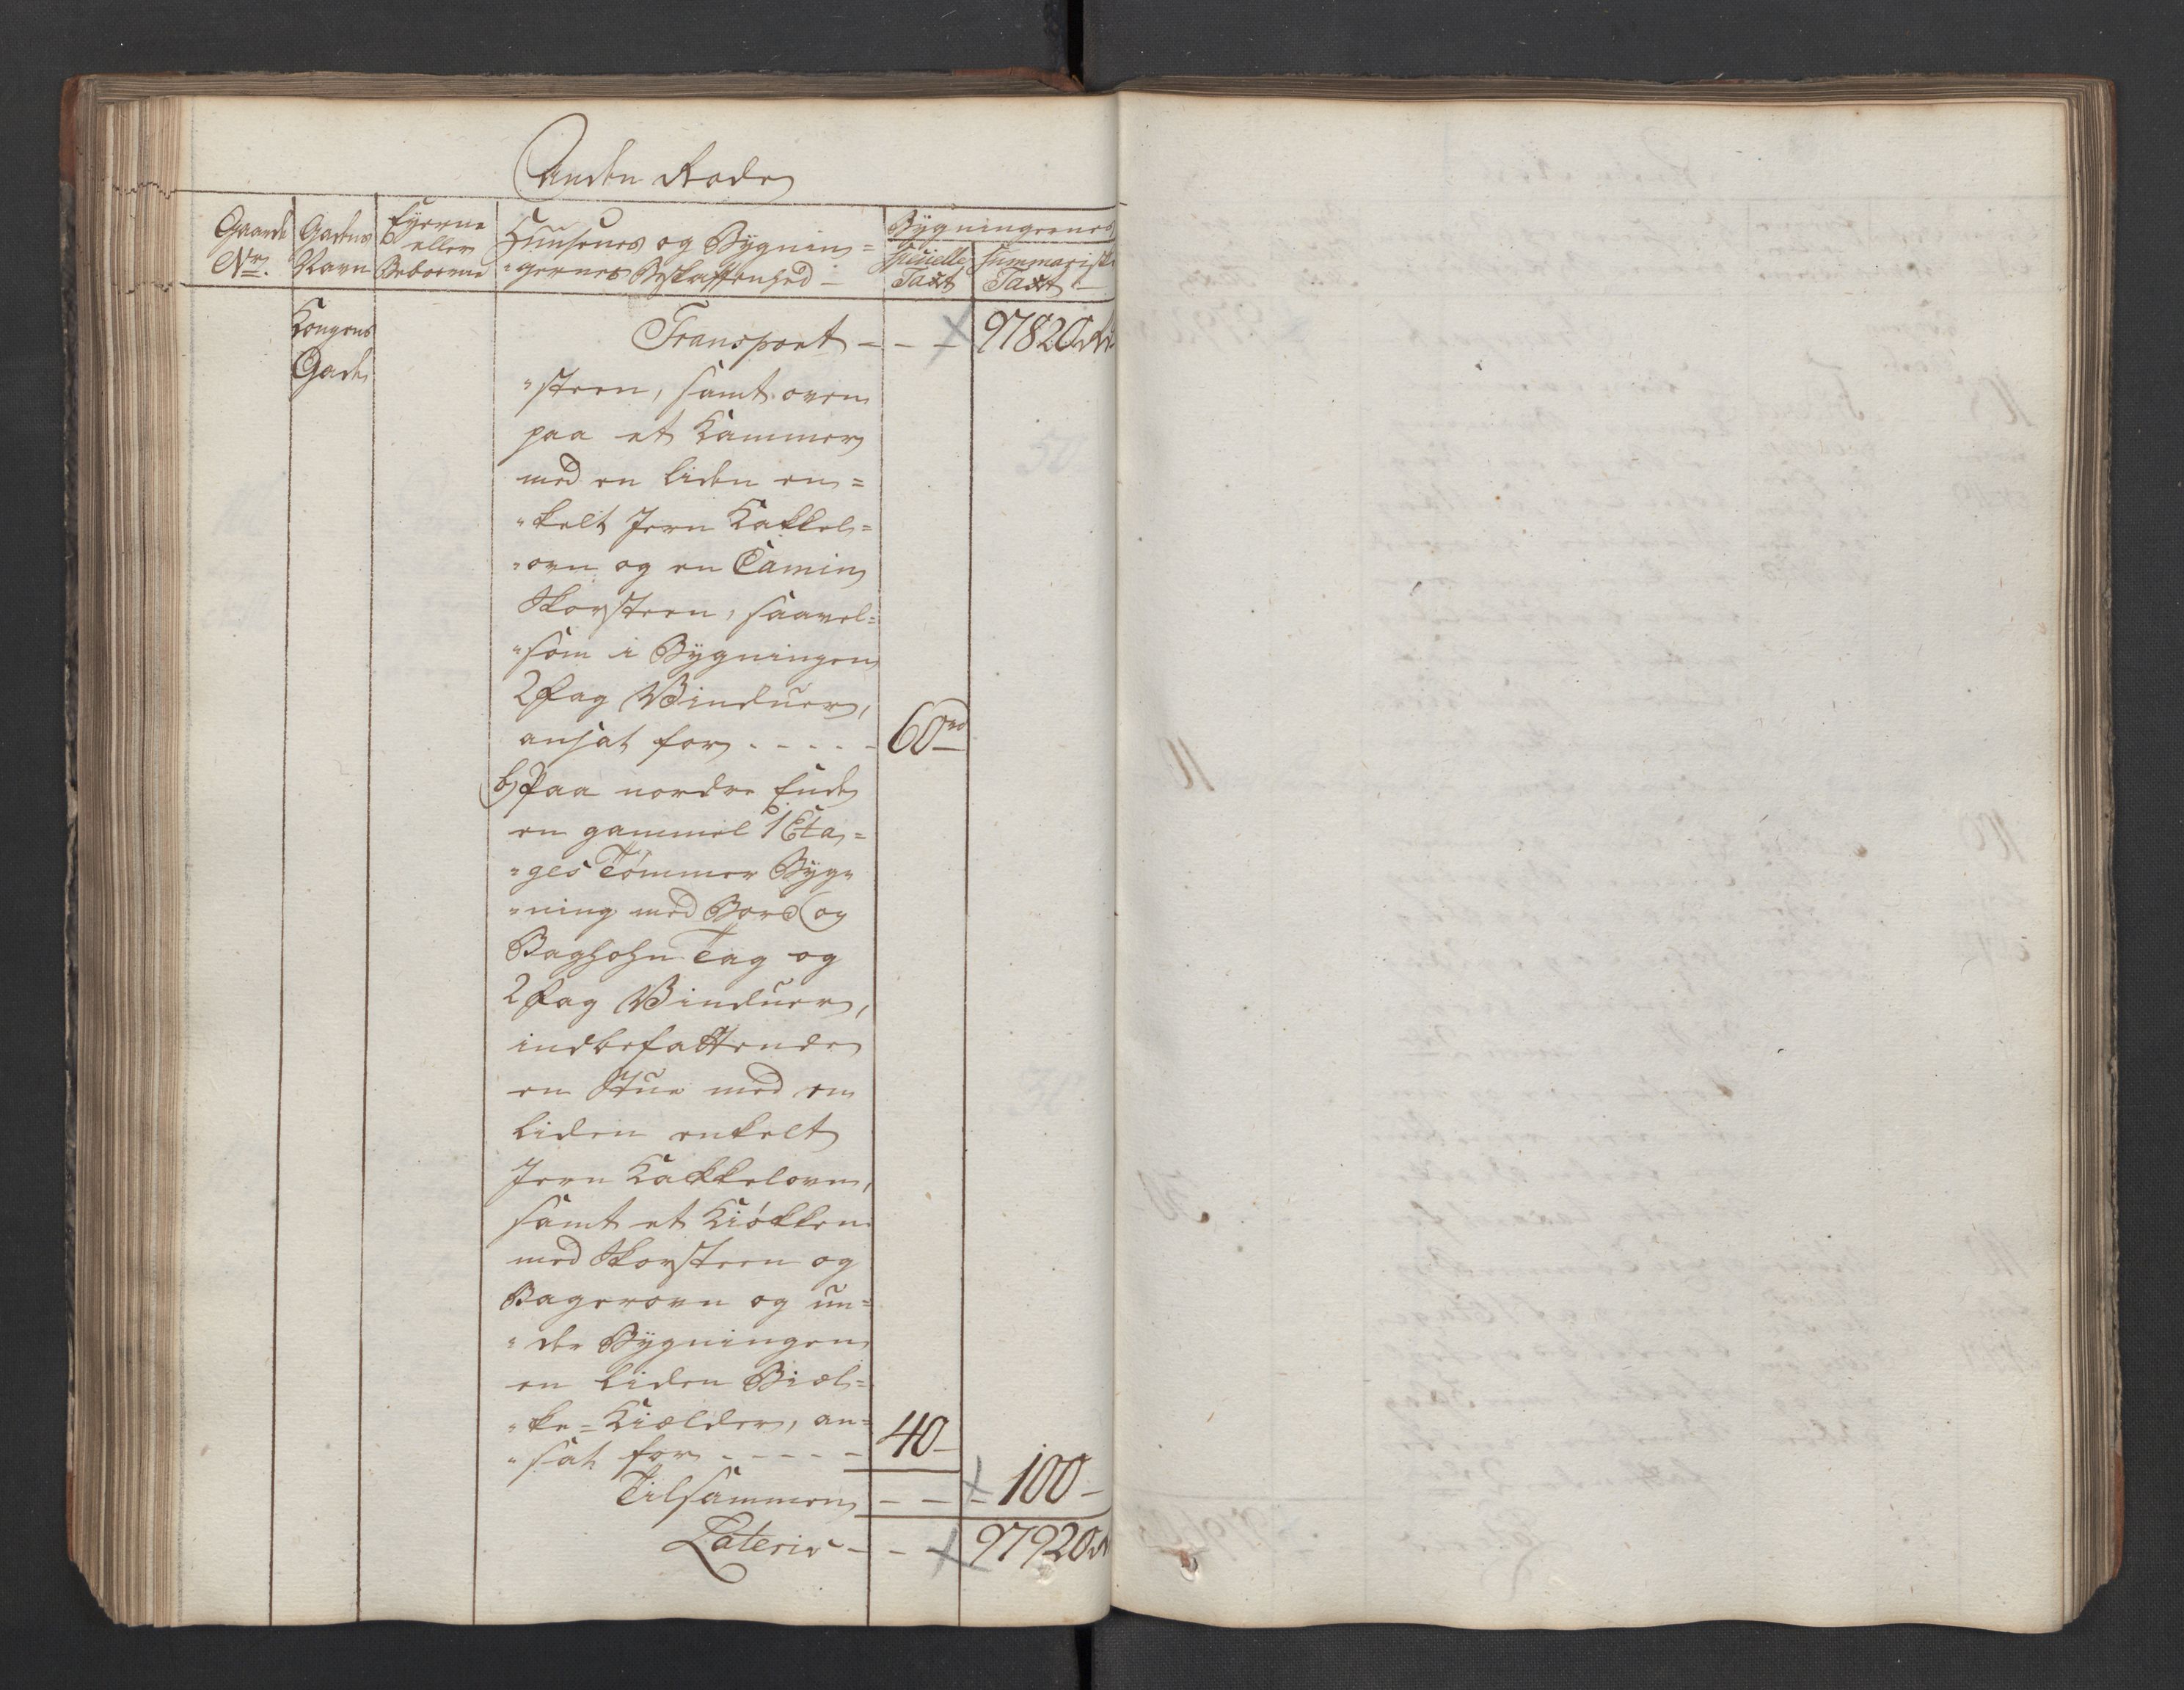 Anden Rode
Gaarde No.
Gadens Navn
Eyerne eller Beboerne
Huusenes og Bygnin=
"gernes Beskaffenhed –
Bygningernes
Specielle Taxt
Summariske Taxt
Kongens
Gade
Transport – – – 97820 rd
"steen, samt oven
paa et Kammer
med en liden en=
"kelt Jern Kakkel=
"ovn og en Camin
Skorsteen, saavel=
"som i Bygningen
2 Fag Vinduer,
ansat for - - - - - 60 rd
b) Paa nordre Ende
en gammel 1 Eta=
"ges Tømmer Byg=
"ning med Bord og
Baghohn Tag og
2 Fag Vinduer,
indbefattende
en Stue med en
liden enkelt
Jern Kakkelovn,
samt et Kiøkken
med Skorsteen og
Bagerovn og un=
"der Bygningen
en liden Biæl=
"ke=Kiælder, an=
"sat for - - - - - 40 –
Tilsammen – – – 100 –
Lateris – – – 97920 rd